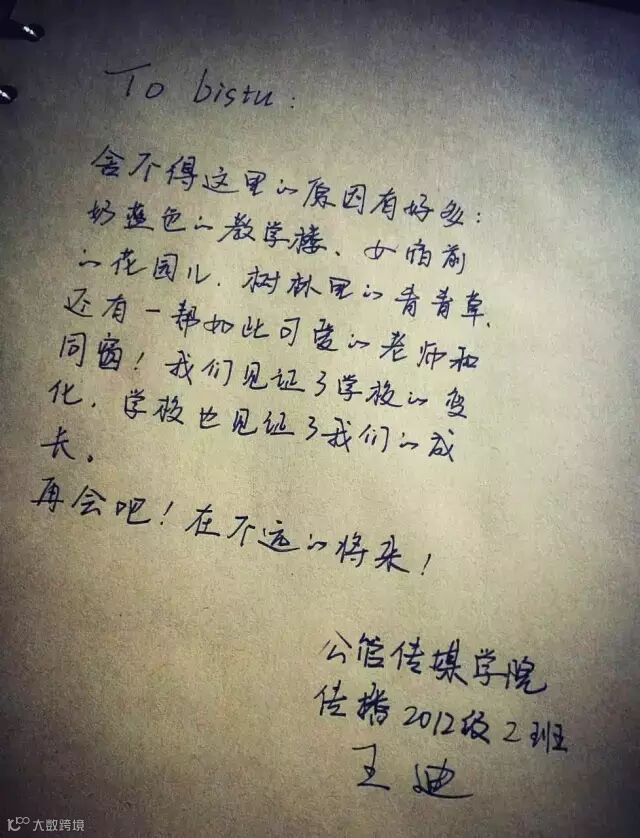 To bistu:
舍不得这里的原因有好多:
奶蓝色的教学楼、女宿前
的花园儿、树林里的青青草、
还有一帮如此可爱的老师和
同窗!我们见证了学校的变
化,学校也见证了我们的成
长。
再会吧!在不远的将来!
公管传媒学院
传播2012级2班
王迪
大数跨境